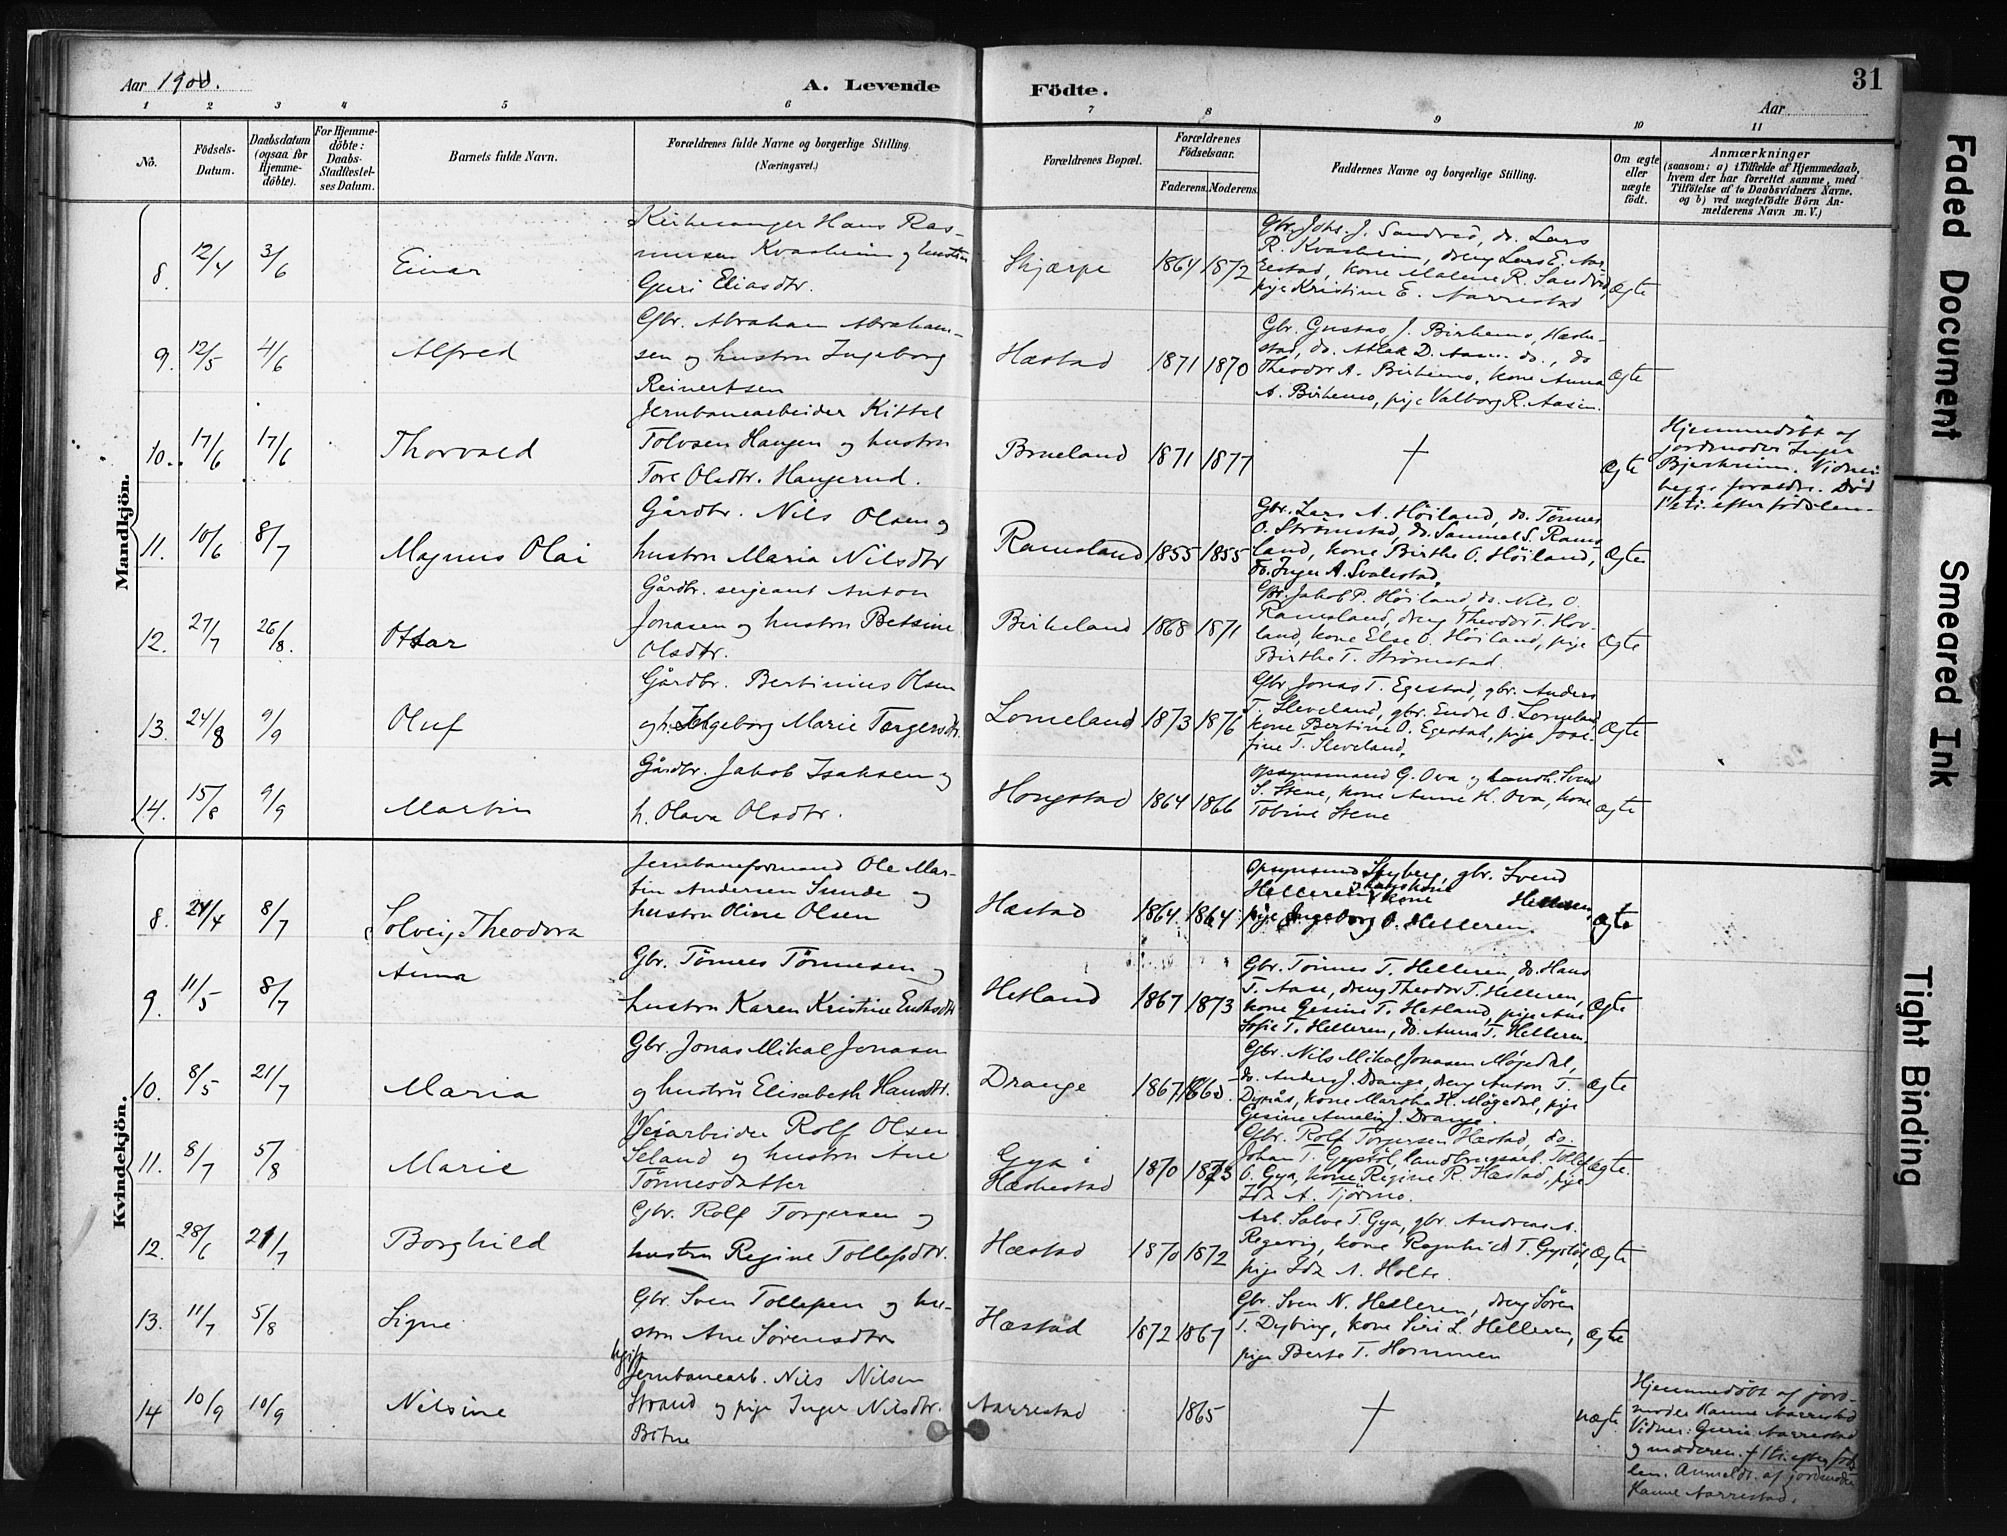 Aar 1900.
A. Levende
Födte.
31
Aar
1 2 3 4 5 6 7 8 9 10 11
No.
Födsels-Datum.
Daabsdatum (ogsaa for Hjemme-döbte).
For Hjemme-döbte: Daabs-Stadfæstel-ses Datum.
Barnets fulde Navn.
Forældrenes fulde Navne og borgerlige Stilling
(Næringsvei.)
Forældrenes Bopæl.
Forældrenes Födselsaar.
Faderens. Moderens.
Faddernes Navne og borgerlige Stilling.
Om ægte eller uægte födt.
Anmærkninger
(saasom: a) i Tilfælde af Hjemmedaab,
hvem der har forrettet samme, med
Tilföielse af to Daabsvidners Navne,
og b) ved uægtefödte Börn An-
melderens Navn m. V.)
Mandkjön.
8. 12/4 3/6 Einar
Kirkesanger Hans Ras-
mussen Kvasheim og hustru
Guri Eliasdtr.
Skjærpe 1864 1872
Gbr. Johs. J. Sandvid, do. Lars
R. Kvasheim, dreng Lars E. Aar-
restad, kone Malene R. Sandvid,
pige Kristine E. Aarrestad
Ægte
9. 12/5 4/6 Alfred
Gbr. Abraham Abraham-
sen og hustru Ingeborg
Reinertsen
Hæstad 1871 1870
Gbr. Gustav J. Birkemo, Hæske-
stad, do. Atlak D. Aasen do., do
Theodor A. Birkemo, kone Anna
A. Birkemo, pige Valborg R. Aasen.
Ægte
10. 17/6 17/6 Thorvald
Jernbanearbeider Kittel
Tolvsen Haugen og hustru
Tore Olsdtr. Haugerud.
Brueland 1871 1877
+
Ægte
Hjemmedøbt af
jordmoder Inger
Bjerkreim. Vidner
begge forældre. Død
1 ti. efter fødslen.
11. 10/6 8/7 Magnus Olai
Gårdbr. Nils Olsen og
hustru Maria Nilsdtr
Ramsland 1855 1855
Gbr. Lars A. Høiland, do. Tønnes
O. Strømstad, do. Sammel S. Rams
land, kone Birthe O. Høiland,
do. Inger A. Svalestad.
Ægte
12. 27/7 26/8. Ottar
Gårdbr. sergeant Anton
Jonasen og hustru Betsine
Olsdtr.
Birkeland 1868 1871
Gbr. Jakob P. Høiland, do. Nils O.
Ramsland, dreng Theodor T. Hov-
land, kone Else O. Høiland, pige
Birthe T. Strømstad.
Ægte
13. 24/8 9/9 Oluf
Gårdbr. Bertinius Olsen
og h. Ingeborg Marie Torgersdtr.
Lomeland 1873 1876
Gbr Jonas T. Egestad, gbr. Anders
T. Sleveland, gbr. Endre O. Lomeland
kone Bertine O. Egestad, pige Jose-
fine T. Sleveland.
Ægte
14. 15/8 9/9 Martin
Gårdbr. Jakob Isaksen og
h. Olava Olsdtr.
Hongstad 1864 1866
opsynsmand G. Ova og landh. Svend
S. Stene, kone Anne H. Ova, kone
Tobine Stene
Ægte
Kvindekjön.
8. 21/4 8/7 Solveig Theodora
Jernbaneformand Ole Mar-
tin Andersen Sunde og
hustru Oline Olsen
Hæstad 1864. 1864
opsynsmd Spyberg, gbr. Svend
Helleren, kone Helleren,
pige Ingeborg O. Helleren.
Ægte
9. 11/5 8/7 Anna
Gbr. Tønnes Tønnesen og
hustru Karen Kristine Endresdtr
Hetland 1867 1873
Gbr. Tønnes T. Helleren, do. Hans
T. Aase, dreng Theodor T. Helleren,
kone Gesine T. Hetland, pige Ane
Sofie T. Helleren, do. Anna T. Helleren
Ægte
10. 8/5 21/7 Maria
Gbr. Jonas Mikal Jonasen
og hustru Elisabeth Hansdtr.
Drange 1867 1865
Gbr. Nils Mikal Jonasen Møgedal,
do. Anders J. Drange, dreng Anton T.
Dypås, kone Martha H. Møgedal, pige
Gesine Amalie J. Drange.
Ægte
11. 8/7 5/8 Marie
Veiarbeider Rolf Olsen
Seland og hustru Ane
Tønnesdatter
Gya i
Hæskestad 1870 1873
Gbr. Rolf Torgersen Hæstad, do.
Johan T. Gystøl, landbrugsarb. Tollef
O. Gya, kone Regine R. Hæstad, pige
Ida A. Tjørmo.
Ægte.
12. 28/6 21/7 Borghild
Gbr. Rolf Torgersen og
hustru Regine Tollefsdtr.
Hæstad 1870 1872
Arb. Salve T. Gya, gbr. Andreas A.
Regevig, kone Ragnhild T. Gystøl,
pige Ida A. Holte.
Ægte
13. 11/7 5/8 Signe
Gbr. Sven Tollefsen og hu-
stru Ane Sørensdtr
Hæstad 1872 1867
Gbr. Sven N. Helleren, dreng Søren
T. Dybing, kone Siri L. Helleren,
pige Berte T. Hommen
Ægte
14 10/9 10/9 Nilsine
ugift
Jernbanearb. Nils Nilsen
Strand og pige Inger Nilsdtr.
Botne
Aarrestad 1865
+
uægte
Hjemmedøbt af jord-
moder Hanne Aarrestad
Vidner: Gurie Aarrestad
og moderen. † 1 ti. efter fød-
len. Anmeldt af jordmoder
Hanne Aarrestad.
Faded Document
Smeared Ink
Tight Binding